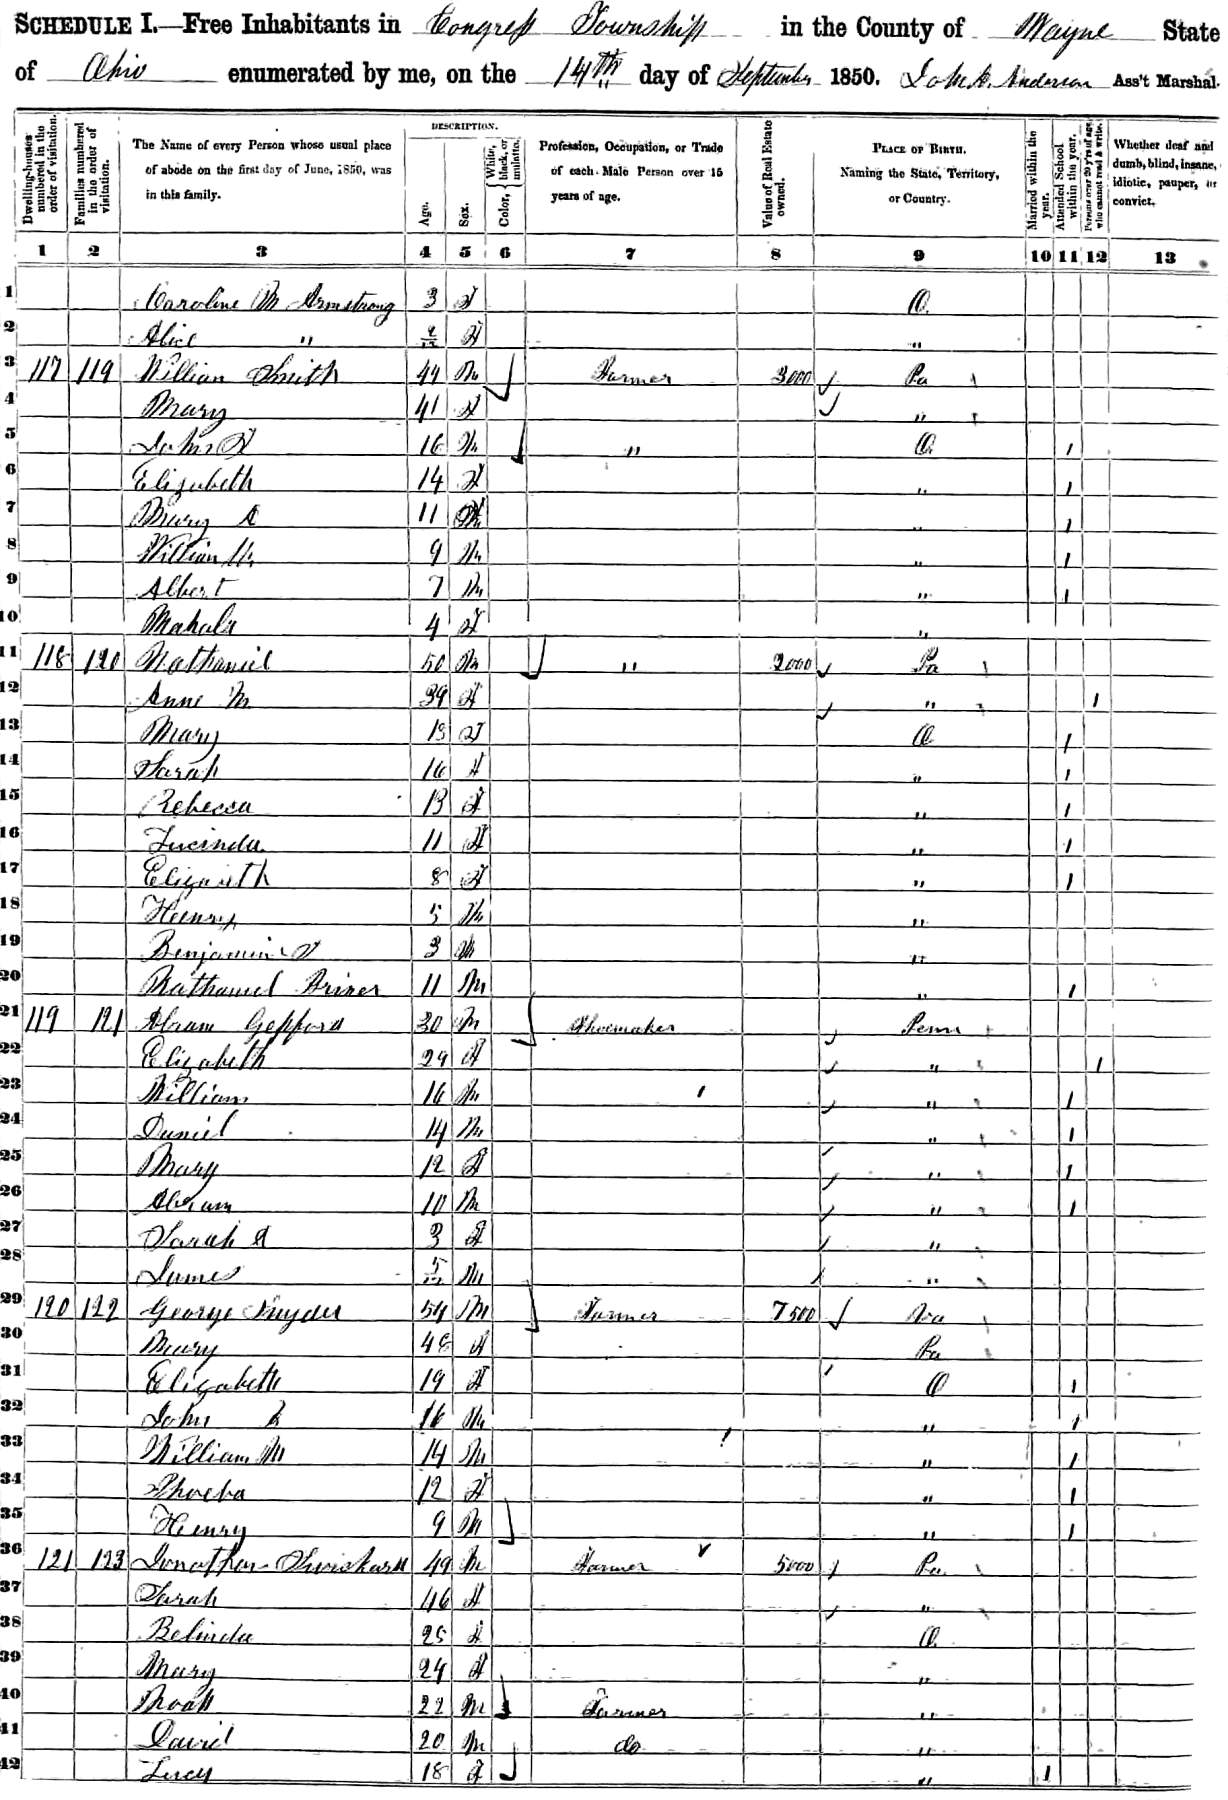 SCHEDULE I.—Free Inhabitants in Congress Township in the County of Wayne State
of Ohio enumerated by me, on the 14th day of September 1850. John A. Anderson Ass't Marshal.
DESCRIPTION.
Dwelling-houses numbered in the order of visitation.
Families numbered in the order of visitation.
The Name of every Person whose usual place of abode on the first day of June, 1850, was in this family.
Age.
Sex.
Color, { White, black, or mulatto.
Profession, Occupation, or Trade of each Male Person over 15 years of age.
Value of Real Estate owned.
PLACE OF BIRTH. Naming the State, Territory, or Country.
Married within the year.
Attended School within the year.
Persons over 20 y'rs of age who cannot read & write.
Whether deaf and dumb, blind, insane, idiotic, pauper, or convict.
1 2 3 4 5 6 7 8 9 10 11 12 13
1 Caroline M Armstrong 3 F O.
2 Alice " 2/12 F "
3 117 119 William Smith 44 M Farmer 3000 Pa
4 Mary 41 F "
5 John F 16 M " O. 1
6 Elizabeth 14 F " 1
7 Mary A 11 " 1
8 William H 9 M " 1
9 Albert 7 M " 1
10 Mahala 4 F "
11 118 120 Nathaniel 50 M " 2000 Pa
12 Anne M 39 F " 1
13 Mary F O. 1
14 Sarah 16 F " 1
15 Rebecca 13 F " 1
16 Lucinda 11 F " 1
17 Elizabeth 8 F " 1
18 Henry 5 M "
19 Benjamin F 3 M "
20 Nathaniel Briner 11 M " 1
21 119 121 Abram Gepford 30 M Shoemaker Penn
22 Elizabeth 29 F " 1
23 William 16 M " 1
24 Daniel 14 M " 1
25 Mary 12 F " 1
26 Abram 10 M " 1
27 Sarah A 3 F "
28 James 5/12 M "
29 120 122 George Snyder 54 M Farmer 7500 Va
30 Mary 48 F Pa
31 Elizabeth 19 F O 1
32 John B 16 M " 1
33 William M 14 M " 1
34 Phoeba 12 F " 1
35 Henry 9 M " 1
36 121 123 Jonathan 49 M Farmer 5000 Pa
37 Sarah 46 F "
38 Belinda 25 F O.
39 Mary 24 F "
40 Noah 22 M Farmer "
41 David 20 M do "
42 Lucy 18 F " 1